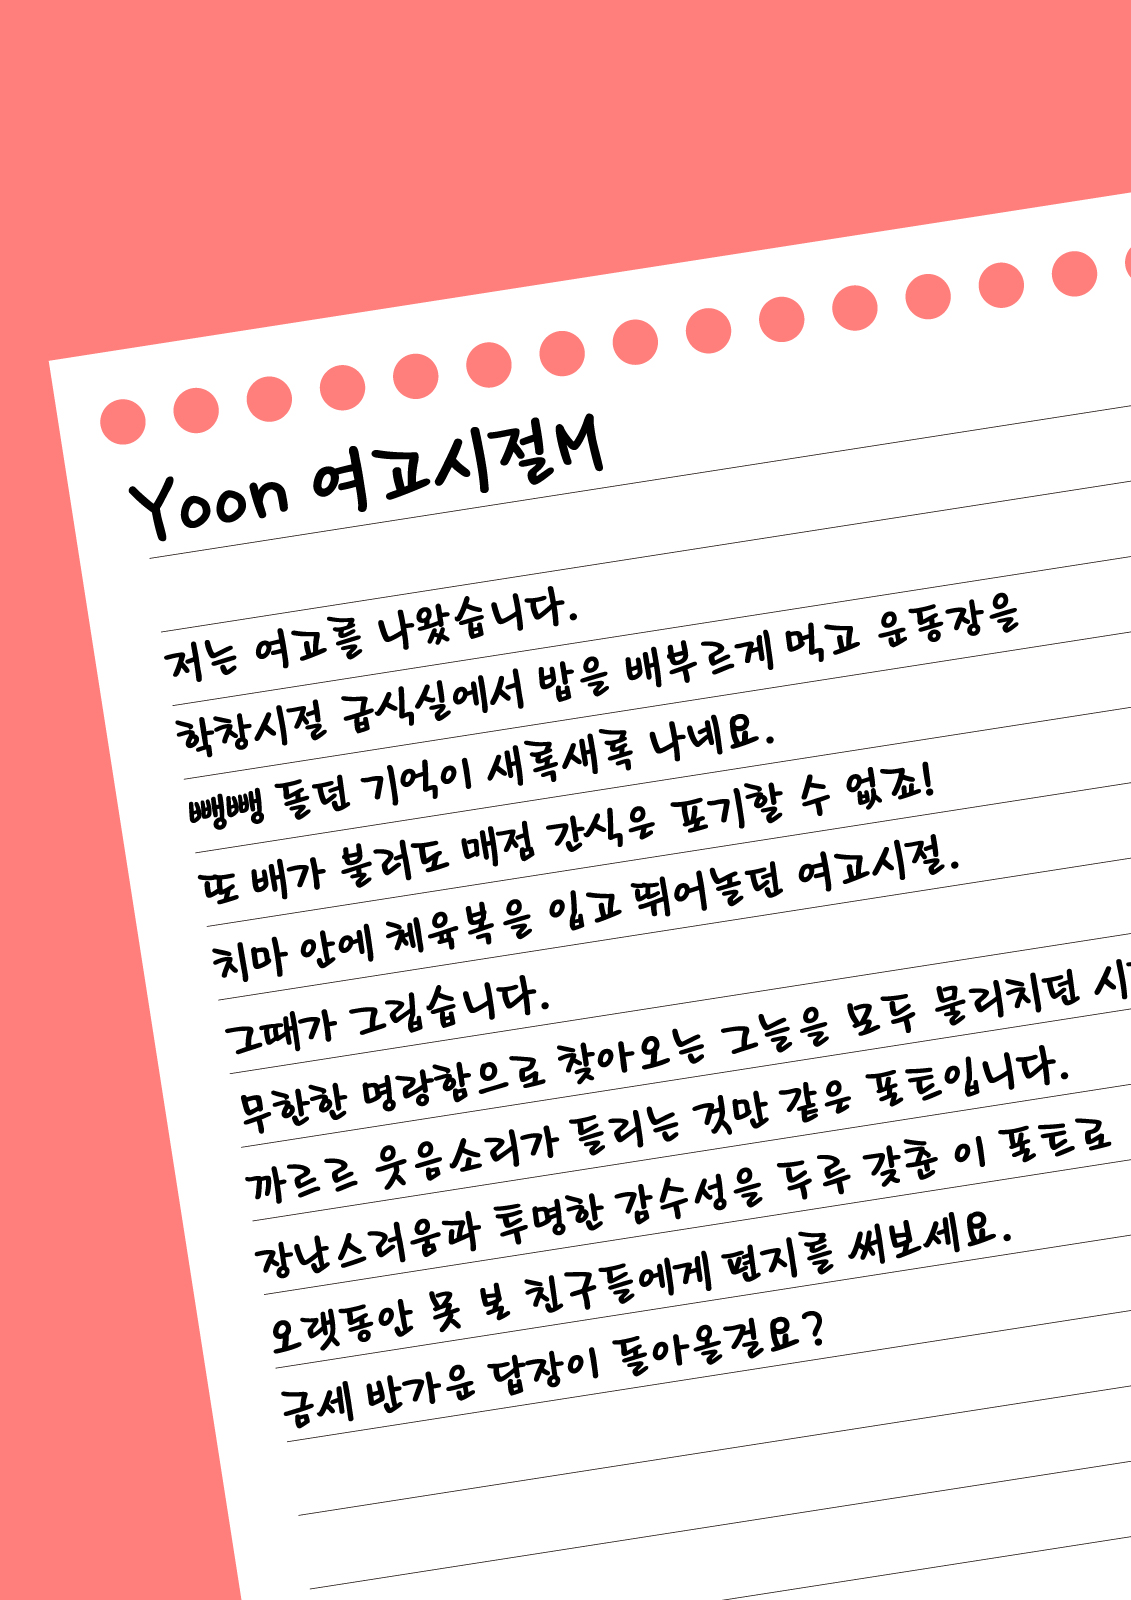 Yoon 여고시절M
저는 여고를 나왔습니다.
학창시절 급식실에서 밥을 배부르게 먹고 운동장을
뺑뺑 돌던 기억이 새록새록 나네요.
또 배가 불러도 매점 간식은 포기할 수 없죠!
치마 안에 체육복을 입고 뛰어놀던 여고시절.
그때가 그립습니다.
무한한 명랑함으로 찾아오는 그늘을 모두 물리치던
까르르 웃음소리가 들리는 것만 같은 폰트입니다.
장난스러움과 투명한 감수성을 두루 갖춘 이 폰트로
오랫동안 못 본 친구들에게 편지를 써보세요.
금세 반가운 답장이 돌아올걸요?